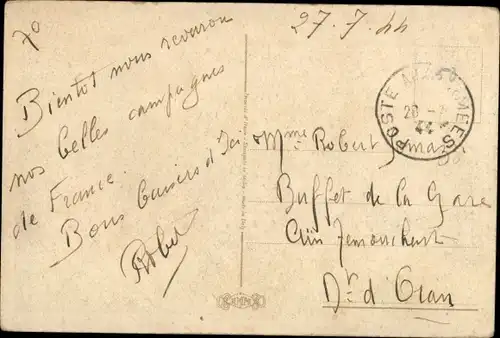 70
27.7.44
Bientot nous reverrons
nos belles campagnes
de France.
Bons baisers d'Ici
Robert
POSTE AUX ARMEES
28 - 7
44
Mme Robert
Buffet de la Gare
Aïn Temouchent
Dt d'Oran